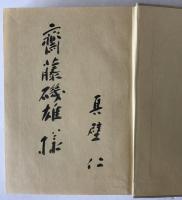 齋藤磯雄様
真壁仁